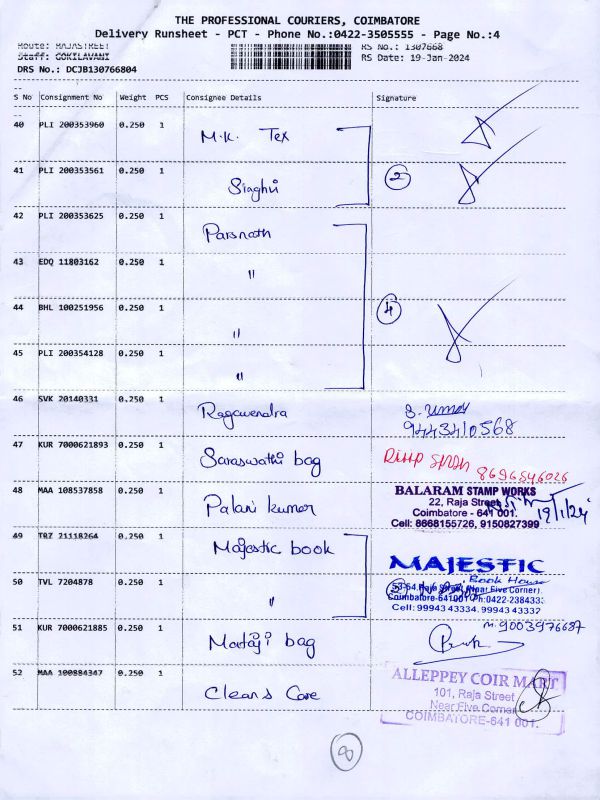 THE PROFESSIONAL COURIERS, COIMBATORE
Delivery Runsheet - PCT - Phone No.:0422-3505555 - Page No.:4
Route: RAJASTREET RS No.: 1307668
Staff: GOKILAVANI RS Date: 19-Jan-2024
DRS No.: DCJB130766804
S No Consignment No Weight PCS Consignee Details Signature
40 PLI 200353960 0.250 1 M.K. Tex
41 PLI 200353561 0.250 1 Singhvi 2
42 PLI 200353625 0.250 1 Parsnath
43 EDQ 11803162 0.250 1 "
44 BHL 100251956 0.250 1 " 4
45 PLI 200354128 0.250 1 "
46 SVK 20140331 0.250 1 Ragavendra
9443410568
47 KUR 7000621893 0.250 1 Saraswathi bag
8696546026
48 MAA 108537858 0.250 1 Palani kumar
BALARAM STAMP WORKS
22, Raja Street
Coimbatore - 641 001.
Cell: 8668155726, 9150827399
19/1/24
49 TRZ 21118264 0.250 1 Majestic book
MAJESTIC
Book House
50 TVL 7204878 0.250 1 "
53-54, Raja Street (Near Five Corner)
Coimbatore-641001 Ph:0422-238433
Cell: 99943 43334, 99943 43332
51 KUR 7000621885 0.250 1 Mataji bag
m. 9003976687
52 MAA 100884347 0.250 1 Clean & Care
ALLEPPEY COIR MART
101, Raja Street
Near Five Corner
COIMBATORE-641 001.
8